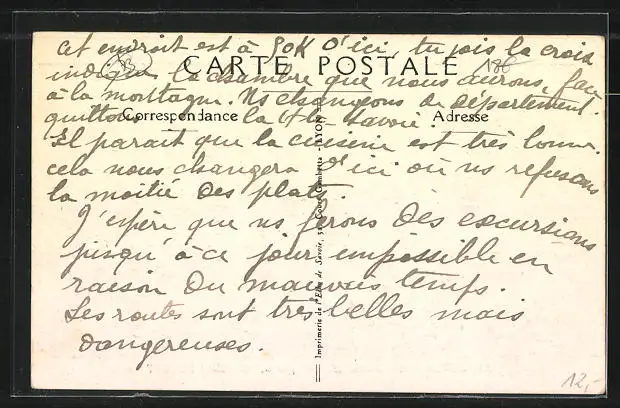 cet endroit est à 90K d'ici, tu vois la croix
CARTE POSTALE
186
indique la chambre que nous aurons, face
à la montagne. Ns changeons de département.
Correspondance
Adresse
quittons la Hte Savoie.
Il parait que la cuisine est très bonne.
cela nous changera d'ici où ns refusons
la moitié des plats.
J'espère que ns ferons des excursions
jusqu'à ce jour impossible en
raison du mauvais temps.
Les routes sont très belles mais
dangereuses.
Imprimerie de l'Est de Savoie, Cours Gambetta - LYON
12,-